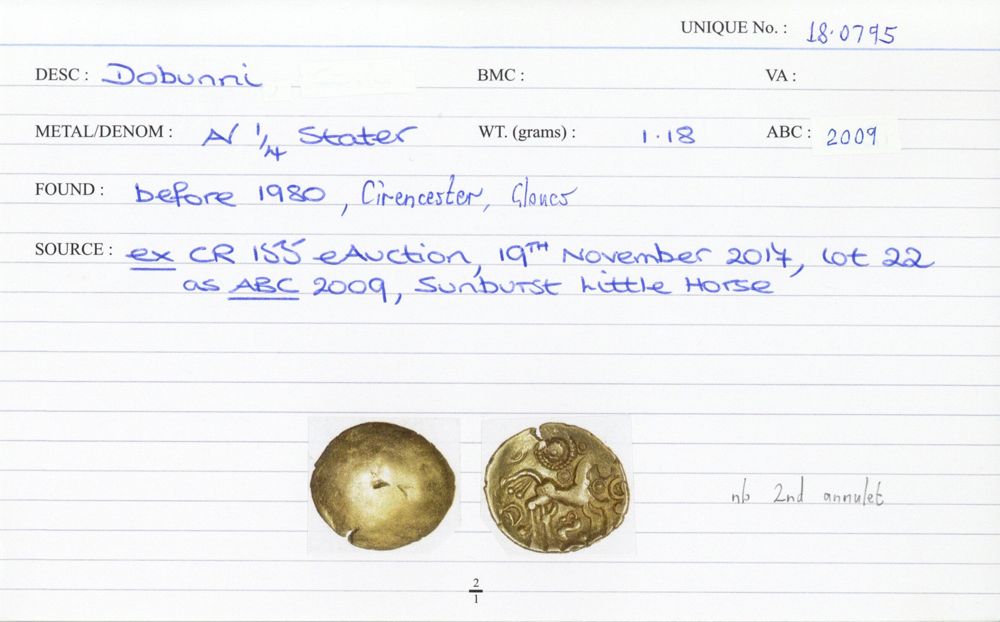 UNIQUE No. : 18·0795
DESC : Dobunni BMC : VA :
METAL/DENOM : A/ 1/4 Stater WT. (grams) : 1·18 ABC : 2009
FOUND : before 1980, Cirencester, Gloucs
SOURCE : ex CR 155 eAuction, 19TH November 2017, lot 22
as ABC 2009, Sunburst Little Horse
nb 2nd annulet
2/1